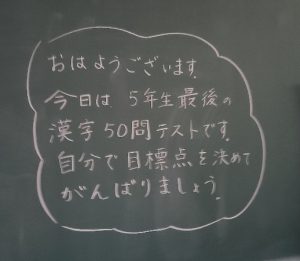 おはようございます.
今日は 5年生最後の
漢字50問テストです.
自分で目標点を決めて
がんばりましょう.